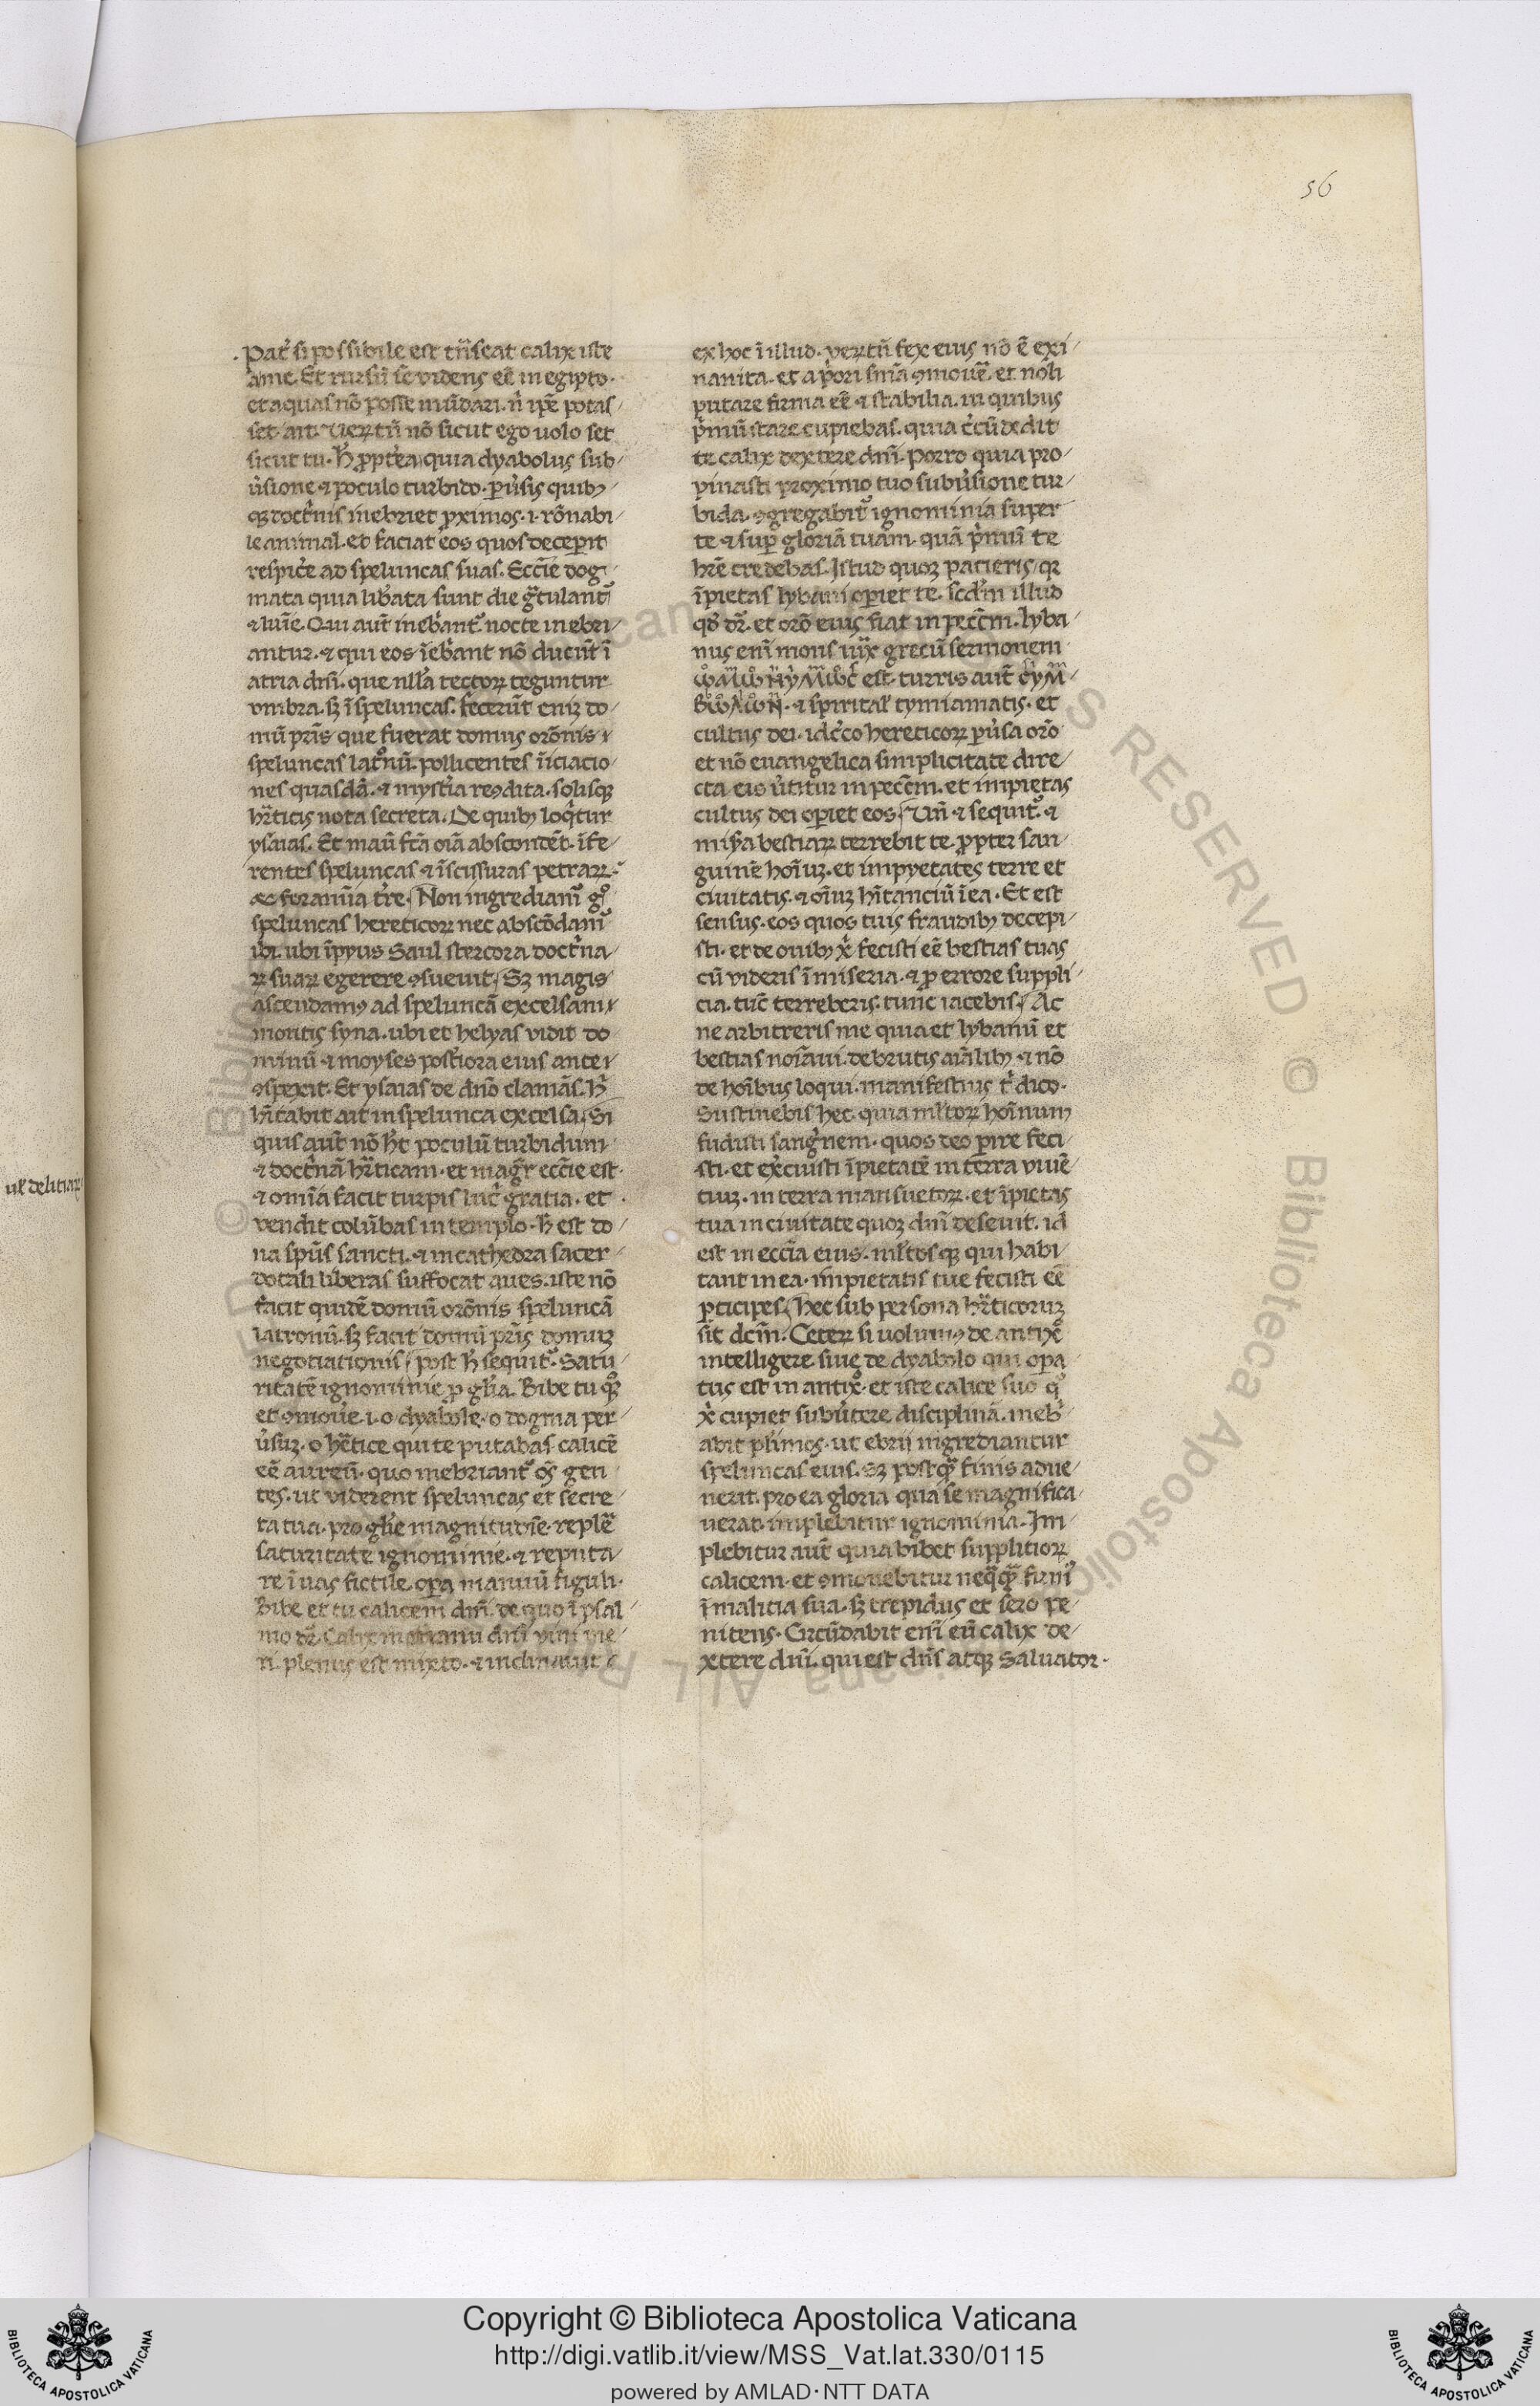 56
Pat̄ si possibile est trāseat calix iste
a me. Et rursū se videns eē in egipto.
et aquas nō posse mūdari. nᵢ ipē potas/
set. ait. Veꝝtn̄ nō sicut ego uolo set
sicut tu. H̄ ꝓpt̄ea quia dyabolus sub/
ūsione ⁊ poculo turbido. ꝑūsis quibꝫ/
qꝫ doct̄nis inebriet ꝓximos. i. rōnabi/
le animal. et faciat eos quos deceꝑit
respic̄e ad speluncas suas. Eccīe dog/
mata quia lib̄ata sunt die gr̄tulant᷒
⁊ luīe. Qui aut̄ ineb̄ant᷒ nocte inebri/
antur. ⁊ qui eos īeb̄ant nō ducūt ī
atria dn̄i. que nll̄a tectoꝝ teguntur
vmbra. sꝫ ī speluncas. fecerūt eniꝫ do/
mū pr̄is que fuerat domus orōnis
speluncas latᵒnū. pollicentes īiciacio/
nes quasdā. ⁊ myst̄ia reꝯdita. solisqꝫ
hr̄ticis nota secreta. De quibꝫ loqᷓtur
ysaias. Et manū fc̄a oīa abscondēt. īfe/
rentes speluncas ⁊ ī scissuras petraꝝ.
⁊ foramīa t̄re. Non ingrediam᷒ gᵒ
speluncas hereticoꝝ nec abscōdam᷒
ibi. ubi īpyus Saul stercora doct̄na/
ꝝ suaꝝ egerere ꝯsueuit. Sꝫ magis
ascendamꝰ ad speluncā excelsam
montis syna. ubi et helyas vidit do
minū ⁊ moyses post̄iora eius ante
ꝯspexit. Et ysaias de dn̄o clamās. H̄
hītabit ait in spelunca excelsa. Si
quis aut̄ nō hēt poculū turbidum
⁊ doct̄nā hr̄ticam. et magr̄ eccīe est.
⁊ omīa facit turpis luc̄ gratia. et
vendit colūbas in templo. h̄ est do/
na spūs sancti. ⁊ in cathedra sacer/
dotali liberas suffocat aues. iste nō
facit quidē domū orōnis speluncā
latronū. sꝫ facit domū pr̄is domuꝫ
negotiationis. post h̄ sequit᷒. Satu/
ritatē ignominie ꝓ gl̄ia. Bibe tu qꝫ
et ꝯmoūe. i. o dyabole. o dogma per/
ūsuꝫ. o hr̄etice qui te putabas calicē
eē aureū. quo inebriant᷒ oēs gen/
tes. ut viderent speluncas et secre/
ta tua. pro gl̄ie magnitudīe. replēe
saturitate ignominie. ⁊ reputa/
re ī uas fictile. oꝑa manuū figuli.
Bibe et tu calicem dn̄i. de quo ī psal/
mo dr̄. Calix in manu dn̄i vini me/
ri plenus est mixto. ⁊ inclinauit
ex hoc ī illud. veꝝtn̄ fex eius nō ē exi/
nanita. et a p̄ori sn̄ia ꝯmouē. et noli
putare firma eē ⁊ stabilia. in quibus
p̄mū stare cupiebas. quia c̄cūdedit
te calix dextere dn̄i. Porro quia pro/
pinasti proximo tuo subūsione tur/
bida. ꝯgregabit᷒ ignominia super
te ⁊ suꝑ gloriā tuam. quā p̄mū te
hr̄e credebas. Istud quoqꝫ patieris. qꝛ
īpietas lybani oꝑiet te. scd̄m illud
qd̄ dr̄. et orō eius fiat in pecc̄m. lyba/
nus enī mons iux̄ grecū sermonem
ⲱⲁⲙⲱⲛⲩⲙⲱⲥ est. turris aut̄ ⲥⲩⲙ/
ⲃⲱⲗⲱⲛ. ⁊ spirital᷒ tymiamatis. et
cultus dei. idc̄co hereticoꝝ ꝑūsa orō
et nō euangelica simplicitate dire/
cta eis ūtitur in pecc̄m. et impietas
cultus dei oꝑiet eos. Vn̄ ⁊ sequit᷒. ⁊
misīa bestiaꝝ terrebit te. ꝓpter san/
guinē hoīuꝫ. et impyetates terre et
ciuitatis. ⁊ oīuꝫ hītanciū ī ea. Et est
sensus. eos quos tuis fraudibꝫ decepi/
sti. et de ouibꝫ xᵢ fecisti eē bestias tuas
cū videris ī miseria. ⁊ ꝓ errore suppli/
cia. tūc terreberis. tunc iacebis. Ac
ne arbitreris me quia et lybanū et
bestias noīaui. de brutis aīalibꝫ ⁊ nō
de hoībus loqui. manifestius t̄ dico.
Sustinebis hec. quia ml̄toꝝ hoīnum
fudisti sanḡnem. quos deo ꝑire feci/
sti. et ex̄cuisti īpietatē in terra viuē
tiuꝫ. in terra mansuetoꝝ. et īpietas
tua in ciuitate quoqꝫ dn̄i deseuit. id
est in eccīa eius. ml̄tosqꝫ qui habi/
tant in ea. impietatis tue fecisti eē
ꝑticipes. Hec sub persona hr̄ticoruꝫ
sit dc̄m. Ceteꝝ si uolumꝰ de antixᵒ
intelligere siue de dyabolo qui oꝑa
tus est in antixᵒ. et iste calice suo qᵒ
xᵢ cupiet subūtere disciplinā. ineb̄
abit pl̄imos. ut ebrij ingrediantur
speluncas eius. Sꝫ postqᷓ finis adue/
nerit. pro ea gloria qua se magnifica/
uerat. implebitur ignominia. Im
plebitur aut̄ quia bibet supplitioꝝ
calicem. et ꝯmouebitur neqᷓqᷓ fini᷒
ī malicia sua. sꝫ trepidus et sero pe/
nitens. Circūdabit enī eū calix de/
xtere dn̄i. qui est dn̄s atqꝫ Saluator.
ul̄ delitiaꝝ
Copyright © Biblioteca Apostolica Vaticana
http://digi.vatlib.it/view/MSS_Vat.lat.330/0115
powered by AMLAD·NTT DATA
BIBLIOTECA APOSTOLICA VATICANA
BIBLIOTECA APOSTOLICA VATICANA